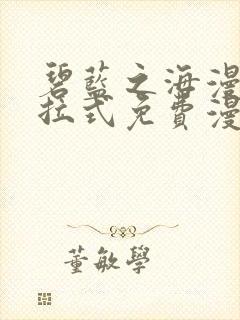 碧藍之海漫
拉式免費漫
董敏學